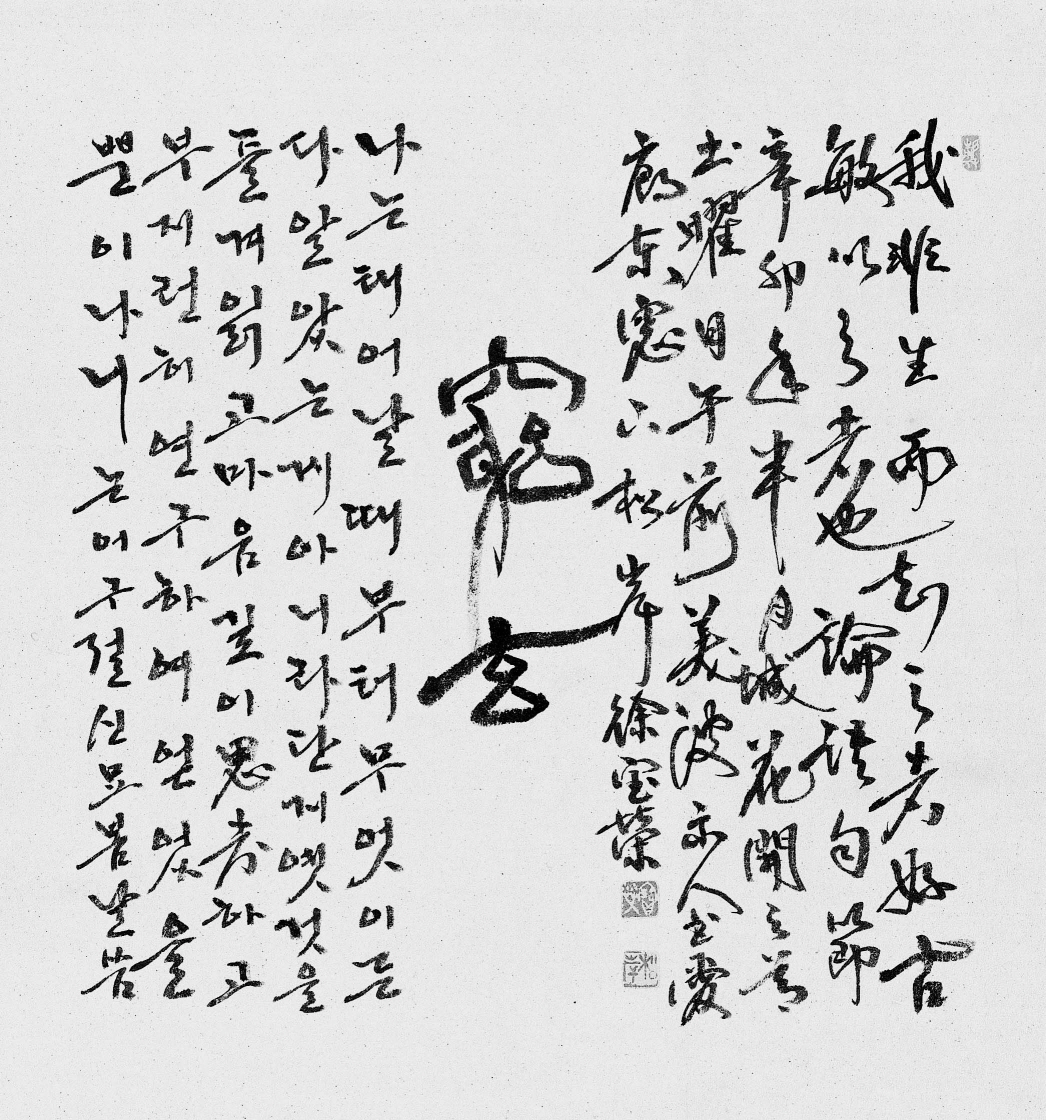 我非生而知之者好古
敏以之者也論語句節
辛卯年半月城花開之
土曜日午前美波
東窓下松岸徐宝榮
窮玄
나는태어날때부터무엇이든
다알았는게아니라단게옛것을
즐겨읽고마음깊이思考하고
부지런히연구하여얻었을
뿐이나니논어구절신묘봄날씀